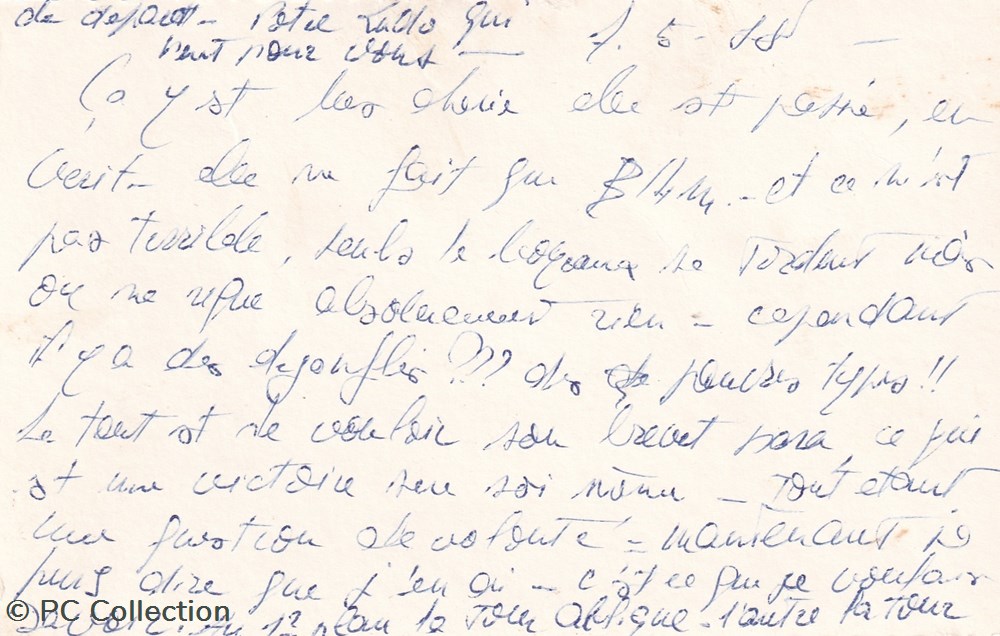 de départ - Votre Ludo qui
veut pour vous — 7. 5 - 58 —
Ça y est chérie elle est passée, en
vérit- elle ne fait que 14m. - et ce n'est
pas terrible, seuls le se tordent mais
on ne risque absolument rien - cependant
il y a des degonflés ??? des pauvres types!!
Le tout est de vouloir son brevet para, ce qui
est une victoire sur soi même - Tout étant
une question de volonté - maintenant je
puis dire que j'en ai - c'est ce que je voulais
savoir. Au 1er plan la Tour oblique - l'autre la tour
© PC Collection